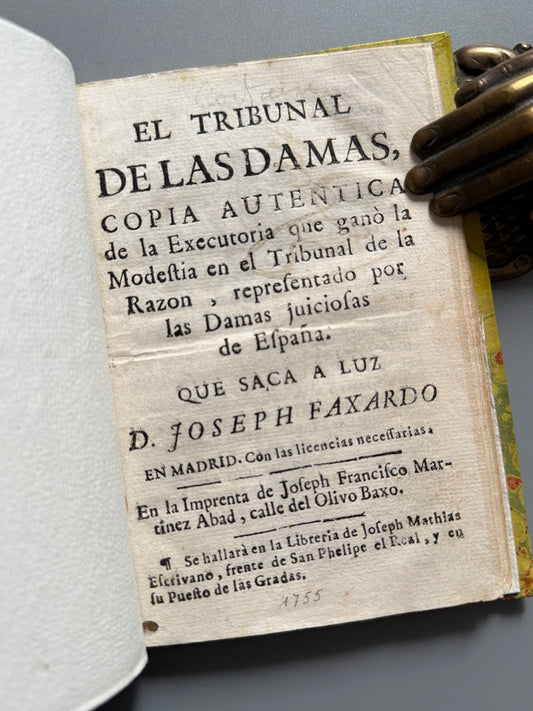 EL TRIBUNAL
DE LAS DAMAS,
COPIA AUTENTICA
de la Executoria que ganò la
Modeſtia en el Tribunal de la
Razon , repreſentado por
las Damas juicioſas
de Eſpaña.
QUE SACA A LUZ
D. JOSEPH FAXARDO
EN MADRID. Con las licencias neceſſarias.
En la Imprenta de Joſeph Franciſco Mar-
tinez Abad , calle del Olivo Baxo.
¶ Se hallarà en la Libreria de Joſeph Mathias
Eſcrivano, frente de San Phelipe el Real, y en
ſu Pueſto de làs Gradas.
1755